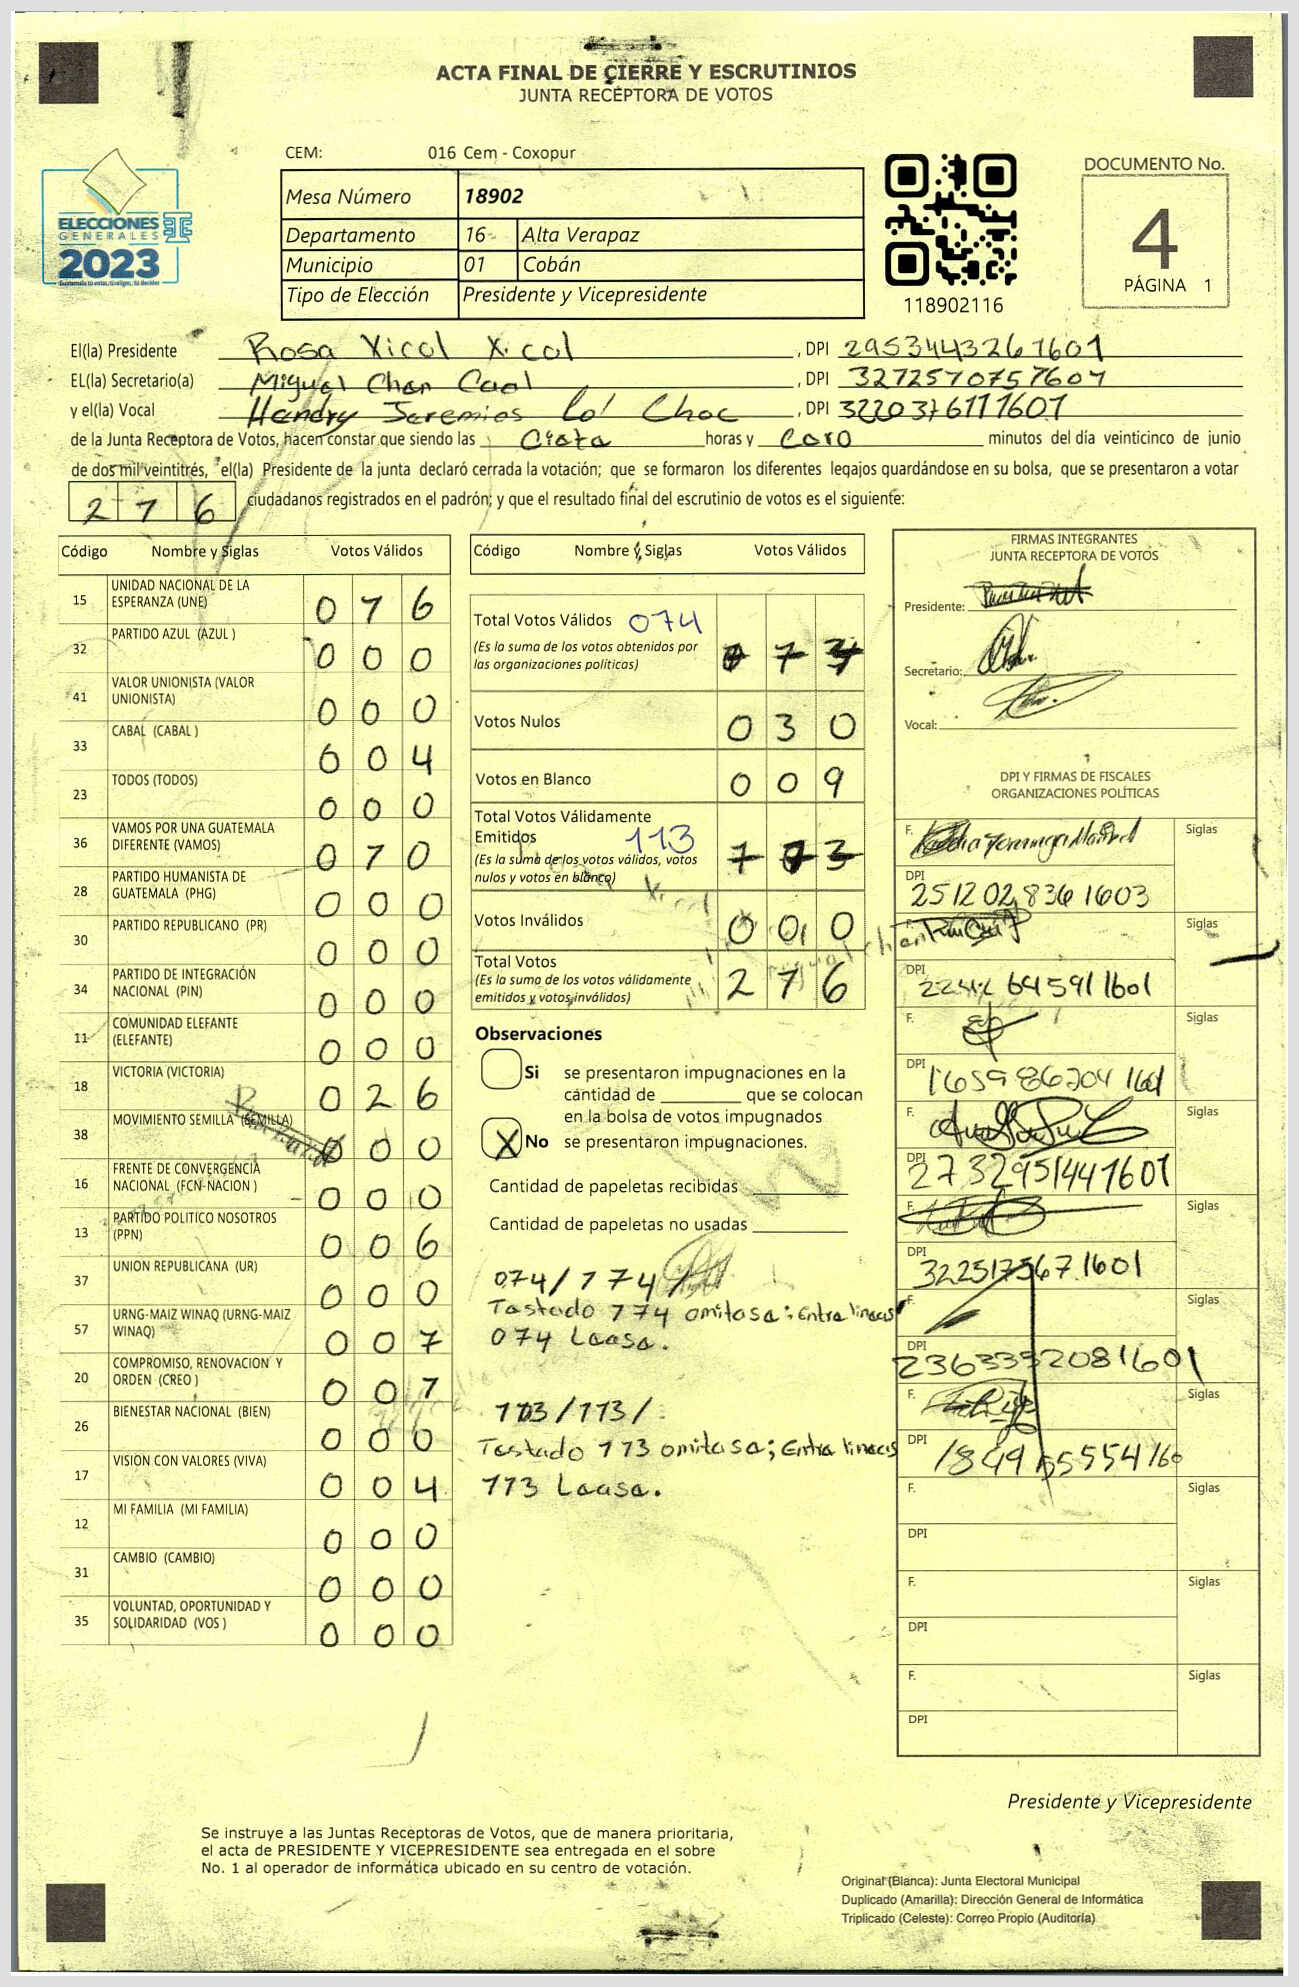 ACTA FINAL DE CIERRE Y ESCRUTINIOS
JUNTA RECEPTORA DE VOTOS
CEM: 016 Cem - Coxopur
Mesa Número 18902
Departamento 16 Alta Verapaz
Municipio 01 Cobán
Tipo de Elección Presidente y Vicepresidente
ELECCIONES
GENERALES TSE
2023
118902116
DOCUMENTO No.
4
PÁGINA 1
El(la) Presidente Rosa Xicol Xicol, DPI 2953443261601
EL(la) Secretario(a) Miguel Chen Caal, DPI 3272570757601
y el(la) Vocal Hendry Jeremios Co' Choc, DPI 3220376111601
de la Junta Receptora de Votos, hacen constar que siendo las Ciete horas y Cero minutos del día veinticinco de junio
de dos mil veintitrés, el(la) Presidente de la junta declaró cerrada la votación; que se formaron los diferentes legajos guardándose en su bolsa, que se presentaron a votar
276 ciudadanos registrados en el padrón; y que el resultado final del escrutinio de votos es el siguiente:
Código Nombre y Siglas Votos Válidos
15 UNIDAD NACIONAL DE LA ESPERANZA (UNE) 076
32 PARTIDO AZUL (AZUL ) 000
41 VALOR UNIONISTA (VALOR UNIONISTA) 000
33 CABAL (CABAL ) 004
23 TODOS (TODOS) 000
36 VAMOS POR UNA GUATEMALA DIFERENTE (VAMOS) 070
28 PARTIDO HUMANISTA DE GUATEMALA (PHG) 000
30 PARTIDO REPUBLICANO (PR) 000
34 PARTIDO DE INTEGRACIÓN NACIONAL (PIN) 000
11 COMUNIDAD ELEFANTE (ELEFANTE) 000
18 VICTORIA (VICTORIA) 026
38 MOVIMIENTO SEMILLA (SEMILLA) 000
16 FRENTE DE CONVERGENCIA NACIONAL (FCN-NACION ) 000
13 PARTIDO POLITICO NOSOTROS (PPN) 006
37 UNION REPUBLICANA (UR) 000
57 URNG-MAIZ WINAQ (URNG-MAIZ WINAQ) 007
20 COMPROMISO, RENOVACION Y ORDEN (CREO ) 007
26 BIENESTAR NACIONAL (BIEN) 000
17 VISION CON VALORES (VIVA) 004
12 MI FAMILIA (MI FAMILIA) 000
31 CAMBIO (CAMBIO) 000
35 VOLUNTAD, OPORTUNIDAD Y SOLIDARIDAD (VOS ) 000
Código Nombre y Siglas Votos Válidos
Total Votos Válidos 074
(Es la suma de los votos obtenidos por
las organizaciones políticas)
Votos Nulos 030
Votos en Blanco 009
Total Votos Válidamente
Emitidos 113
(Es la suma de los votos válidos, votos
nulos y votos en blanco)
Votos Inválidos 000
Total Votos 276
(Es la suma de los votos válidamente
emitidos y votos inválidos)
Observaciones
Si se presentaron impugnaciones en la
cantidad de ________ que se colocan
en la bolsa de votos impugnados
X No se presentaron impugnaciones.
Cantidad de papeletas recibidas
Cantidad de papeletas no usadas
074/174/
Testado 174 omitase; Entre lineas
074 Lease.
113/113/
Testado 113 omitase; Entre lineas
113 Lease.
FIRMAS INTEGRANTES
JUNTA RECEPTORA DE VOTOS
Presidente:
Secretario:
Vocal:
DPI Y FIRMAS DE FISCALES
ORGANIZACIONES POLÍTICAS
F. Siglas
DPI 2512028361603
F. Siglas
DPI
F. Siglas
DPI 1659862041601
F. Siglas
DPI 2732951441601
F. Siglas
DPI 3225175671601
F. Siglas
DPI 23633332081601
F. Siglas
DPI
F. Siglas
DPI
F. Siglas
DPI
F. Siglas
DPI
Presidente y Vicepresidente
Se instruye a las Juntas Receptoras de Votos, que de manera prioritaria,
el acta de PRESIDENTE Y VICEPRESIDENTE sea entregada en el sobre
No. 1 al operador de informática ubicado en su centro de votación.
Original (Blanca): Junta Electoral Municipal
Duplicado (Amarilla): Dirección General de Informática
Triplicado (Celeste): Correo Propio (Auditoría)